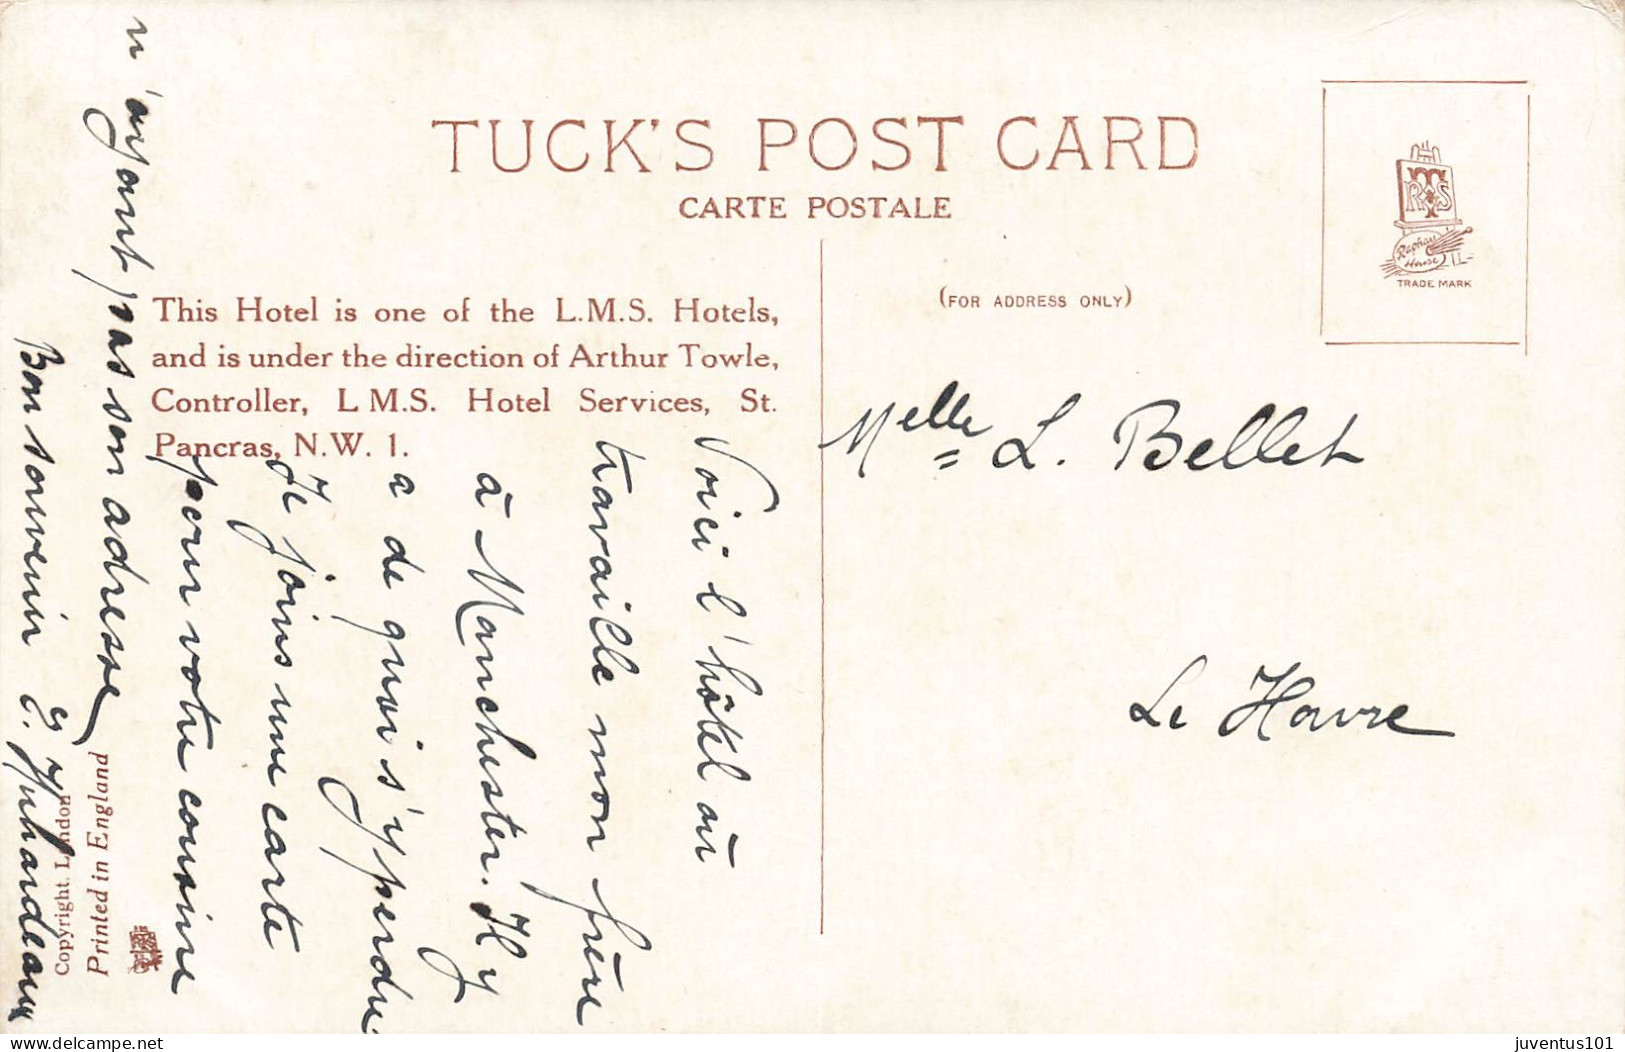 TUCK'S POST CARD
CARTE POSTALE
(FOR ADDRESS ONLY)
RTS
Raphael
House
TRADE MARK
This Hotel is one of the L.M.S. Hotels,
and is under the direction of Arthur Towle,
Controller, L M.S. Hotel Services, St.
Pancras, N.W. 1.
Voici l'hôtel où
travaille mon frère
à Manchester. Il y
a de quoi s'y perdre
Je joins une carte
pour votre cousine
n'ayant pas son adresse
Bon souvenir E.
Melle L. Bellet
Le Havre
Copyright. London
Printed in England
delcampe.net
juventus101